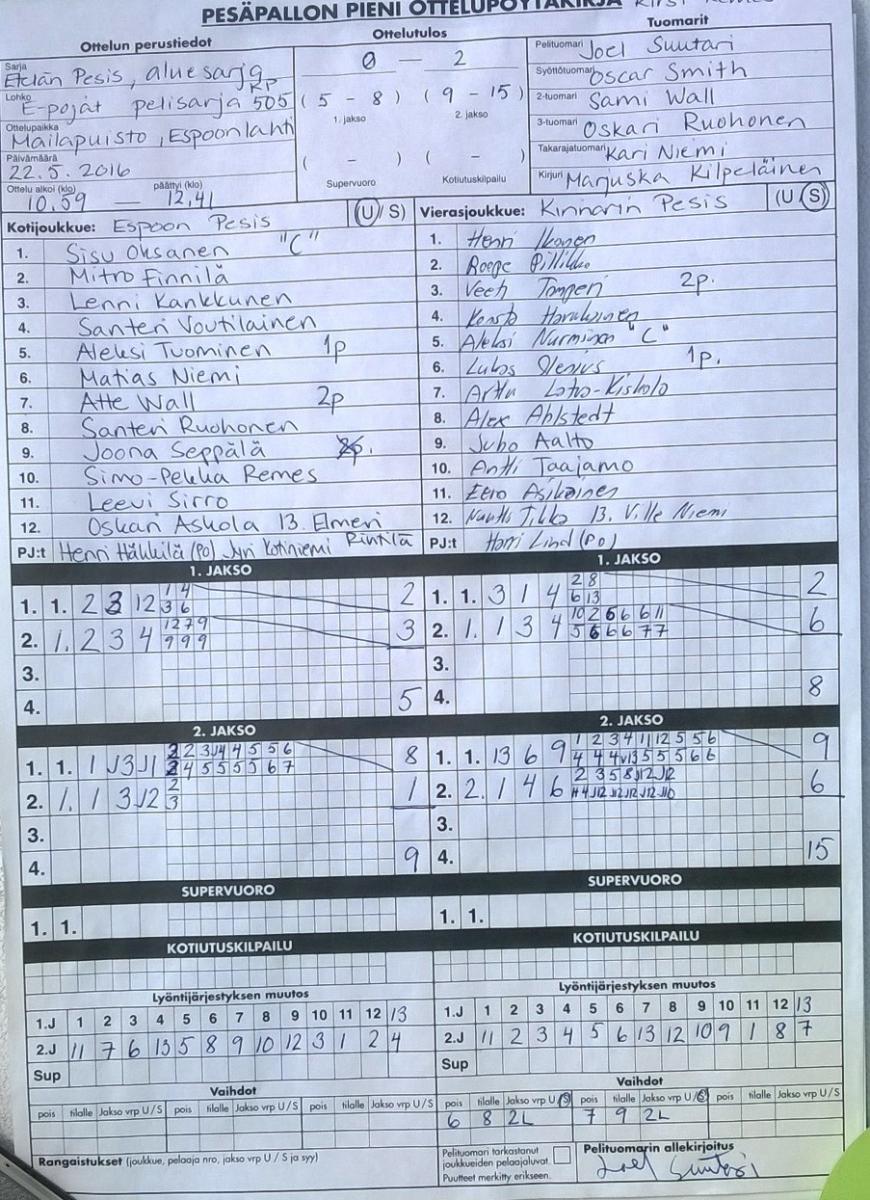 PESÄPALLON PIENI OTTELUPÖYTÄKIRJA
Ottelun perustiedot
Sarja
Etelän Pesis, aluesarja
Lohko
E-pojat pelisarja KP 505
Ottelupaikka
Mailapuisto, Espoonlahti
Päivämäärä
22.5.2016
Ottelu alkoi (klo) päättyi (klo)
10.59 — 12.41
Ottelutulos
0 — 2
( 5 - 8 ) ( 9 - 15 )
1. jakso 2. jakso
( - ) ( - )
Supervuoro Kotiutuskilpailu
Tuomarit
Pelituomari Joel Suutari
Syöttötuomari Oscar Smith
2-tuomari Sami Wall
3-tuomari Oskari Ruohonen
Takarajatuomari Kari Niemi
Kirjuri Marjuska Kilpeläinen
Kotijoukkue: Espoon Pesis (U/S)
1. Sisu Oksanen "C"
2. Mitro Finnilä
3. Lenni Kankkunen
4. Santeri Voutilainen
5. Aleksi Tuominen 1p
6. Matias Niemi
7. Atte Wall 2p
8. Santeri Ruohonen
9. Joona Seppälä
10. Simo-Pekka Remes
11. Leevi Sirro
12. Oskari Askola 13. Elmeri Rintilä
PJ:t Henri Häkkilä (PO) Jyri Kotiniemi
Vierasjoukkue: Kinnarin Pesis (U/S)
1. Henri Ikonen
2. Roope
3. 2p.
4.
5. Aleksi Nurminen "C"
6. 1p.
7. Arttu
8. Alex Ahlstedt
9. Juho Aalto
10. Antti Taajamo
11. Eero Asikainen
12. 13. Ville Niemi
PJ:t Harri Lind (PO)
1. JAKSO
1. 1. 2 3 12 1 4 3 6 2
2. 1. 2 3 4 1 2 7 9 9 9 9 3
3.
4. 5
1. JAKSO
1. 1. 3 1 4 2 8 6 13 2
2. 1. 1 3 4 10 2 6 6 6 11 5 6 6 6 7 7 6
3.
4. 8
2. JAKSO
1. 1. 1 J3 J1 2 2 3 J4 4 5 5 6 2 4 5 5 5 5 6 7 8
2. 1. 1 3 J2 2 3 1
3.
4. 9
2. JAKSO
1. 1. 13 6 9 1 2 3 4 11 12 5 5 6 4 4 4 5 5 5 6 6 9
2. 2. 1 4 6 2 3 5 8 J12 J12 6
3.
4. 15
SUPERVUORO
1. 1.
SUPERVUORO
1. 1.
KOTIUTUSKILPAILU
KOTIUTUSKILPAILU
Lyöntijärjestyksen muutos
1.J 1 2 3 4 5 6 7 8 9 10 11 12 13
2.J 11 7 6 13 5 8 9 10 12 3 1 2 4
Sup
Lyöntijärjestyksen muutos
1.J 1 2 3 4 5 6 7 8 9 10 11 12 13
2.J 11 2 3 4 5 6 13 12 10 9 1 8 7
Sup
Vaihdot
pois tilalle Jakso vrp U/S pois tilalle Jakso vrp U/S pois tilalle Jakso vrp U/S
Vaihdot
pois tilalle Jakso vrp U/S pois tilalle Jakso vrp U/S pois tilalle Jakso vrp U/S
6 8 2L 7 9 2L
Rangaistukset (joukkue, pelaaja nro, jakso vrp U / S ja syy)
Pelituomari tarkastanut
joukkueiden pelaajaluvat.
Puutteet merkitty erikseen.
Pelituomarin allekirjoitus
Joel Suutari